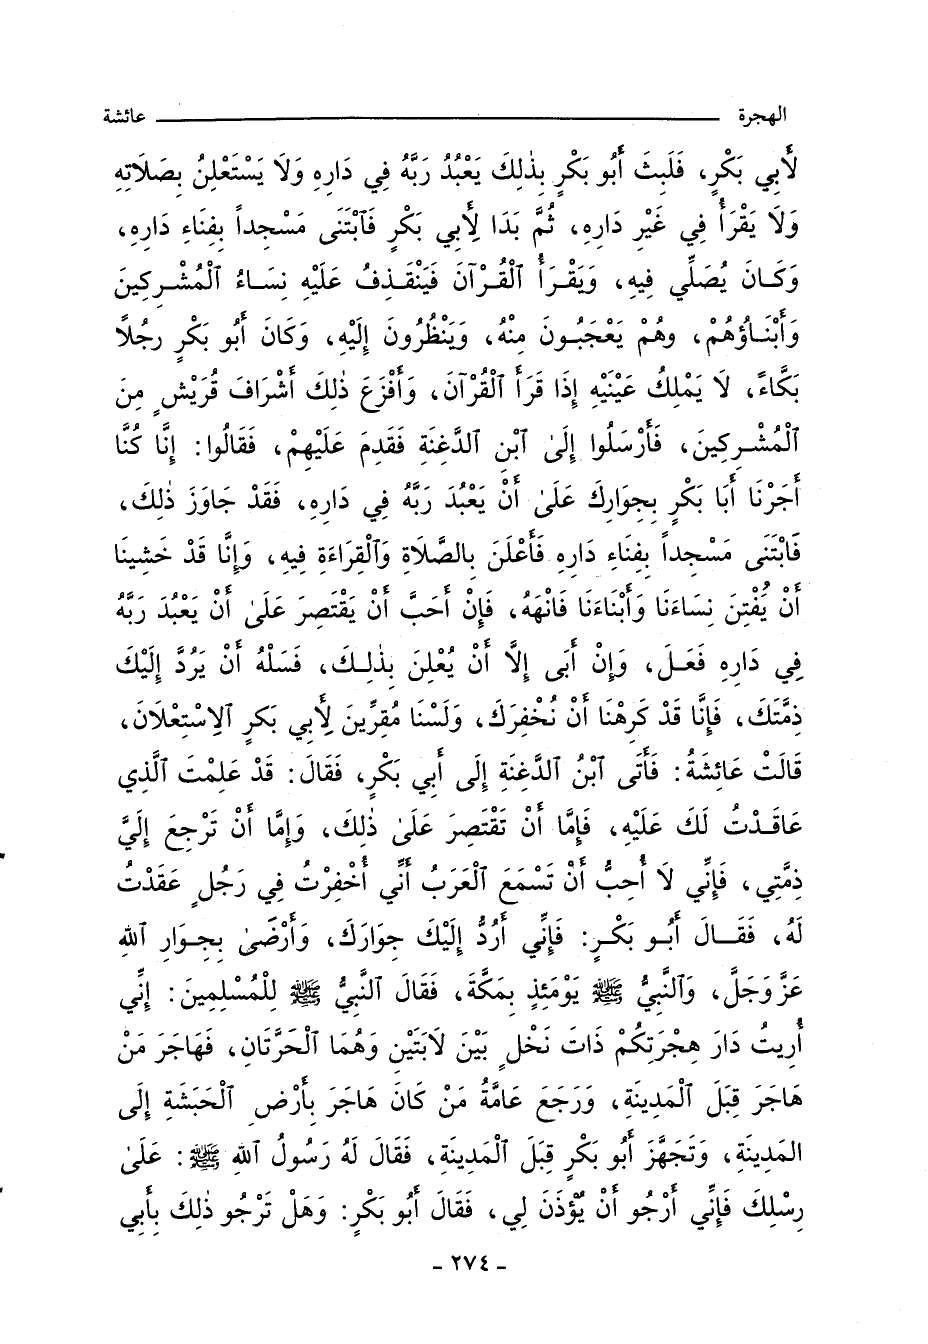 الهجرة ــــــــ عائشة
لأَبِي بَكْرٍ، فَلَبِثَ أَبُو بَكْرٍ بِذٰلِكَ يَعْبُدُ رَبَّهُ فِي دَارِهِ وَلَا يَسْتَعْلِنُ بِصَلَاتِهِ
وَلَا يَقْرَأُ فِي غَيْرِ دَارِهِ، ثُمَّ بَدَا لِأَبِي بَكْرٍ فَٱبْتَنَى مَسْجِداً بِفِنَاءِ دَارِهِ،
وَكَانَ يُصَلِّي فِيهِ، وَيَقْرَأُ ٱلْقُرْآنَ فَيَنْقَذِفُ عَلَيْهِ نِسَاءُ ٱلْمُشْرِكِينَ
وَأَبْنَاؤُهُمْ، وهُمْ يَعْجَبُونَ مِنْهُ، وَيَنْظُرُونَ إِلَيْهِ، وَكَانَ أَبُو بَكْرٍ رجُلاً
بَكَّاءً، لَا يَمْلِكُ عَيْنَيْهِ إِذَا قَرَأَ ٱلْقُرْآنَ، وَأَفْزَعَ ذٰلِكَ أَشْرَافَ قُرَيْشٍ مِنَ
ٱلْمُشْرِكِينَ، فَأَرْسَلُوا إِلَىٰ ٱبْنِ ٱلدَّغِنَةِ فَقَدِمَ عَلَيْهِمْ، فَقَالُوا: إِنَّا كُنَّا
أَجَرْنَا أَبَا بَكْرٍ بِجِوَارِكَ عَلَىٰ أَنْ يَعْبُدَ رَبَّهُ فِي دَارِهِ، فَقَدْ جَاوَزَ ذٰلِكَ،
فَابْتَنَى مَسْجِداً بِفِنَاءِ دَارِهِ فَأَعْلَنَ بِالصَّلَاةِ وَٱلْقِرَاءَةِ فِيهِ، وَإِنَّا قَدْ خَشِينَا
أَنْ يُفْتِنَ نِسَاءَنَا وَأَبْنَاءَنَا فَانْهَهُ، فَإِنْ أَحَبَّ أَنْ يَقْتَصِرَ عَلَىٰ أَنْ يَعْبُدَ رَبَّهُ
فِي دَارِهِ فَعَلَ، وَإِنْ أَبَى إِلَّا أَنْ يُعْلِنَ بِذٰلِكَ، فَسَلْهُ أَنْ يَرُدَّ إِلَيْكَ
ذِمَّتَكَ، فَإِنَّا قَدْ كَرِهْنَا أَنْ نُخْفِرَكَ، وَلَسْنَا مُقِرِّينَ لِأَبِي بَكرٍ ٱلِاسْتِعْلَانَ،
قَالَتْ عَائِشَةُ: فَأَتَى ٱبْنُ ٱلدَّغِنَةِ إِلَى أَبِي بَكْرٍ، فَقَالَ: قَدْ عَلِمْتَ ٱلَّذِي
عَاقَدْتُ لَكَ عَلَيْهِ، فَإِمَّا أَنْ تَقْتَصِرَ عَلَىٰ ذٰلِكَ، وَإِمَّا أَنْ تَرْجِعَ إِلَيَّ
ذِمَّتِي، فَإِنِّي لَا أُحِبُّ أَنْ تَسْمَعَ ٱلْعَرَبُ أَنِّي أُخْفِرْتُ فِي رَجُلٍ عَقَدْتُ
لَهُ، فَقَالَ أَبُو بَكْرٍ: فَإِنِّي أَرُدُّ إِلَيْكَ جِوَارَكَ، وَأَرْضَىٰ بِجِوَارِ ٱللهِ
عَزَّ وَجَلَّ، وَٱلنَّبِيُّ ﷺ يَوْمَئِذٍ بِمَكَّةَ، فَقَالَ ٱلنَّبِيُّ ﷺ لِلْمُسْلِمِينَ: إِنِّي
أُرِيتُ دَارَ هِجْرَتِكُمْ ذَاتَ نَخْلٍ بَيْنَ لَابَتَيْنِ وَهُمَا ٱلْحَرَّتَانِ، فَهَاجَرَ مَنْ
هَاجَرَ قِبَلَ ٱلْمَدِينَةِ، وَرَجَعَ عَامَّةُ مَنْ كَانَ هَاجَرَ بِأَرْضِ ٱلْحَبَشَةِ إِلَى
المَدِينَةِ، وَتَجَهَّزَ أَبُو بَكْرٍ قِبَلَ ٱلْمَدِينَةِ، فَقَالَ لَهُ رَسُولُ ٱللهِ ﷺ: عَلَىٰ
رِسْلِكَ فَإِنِّي أَرْجُو أَنْ يُؤْذَنَ لِي، فَقَالَ أَبُو بَكْرٍ: وَهَلْ تَرْجُو ذٰلِكَ بِأَبِي
- ٢٧٤ -